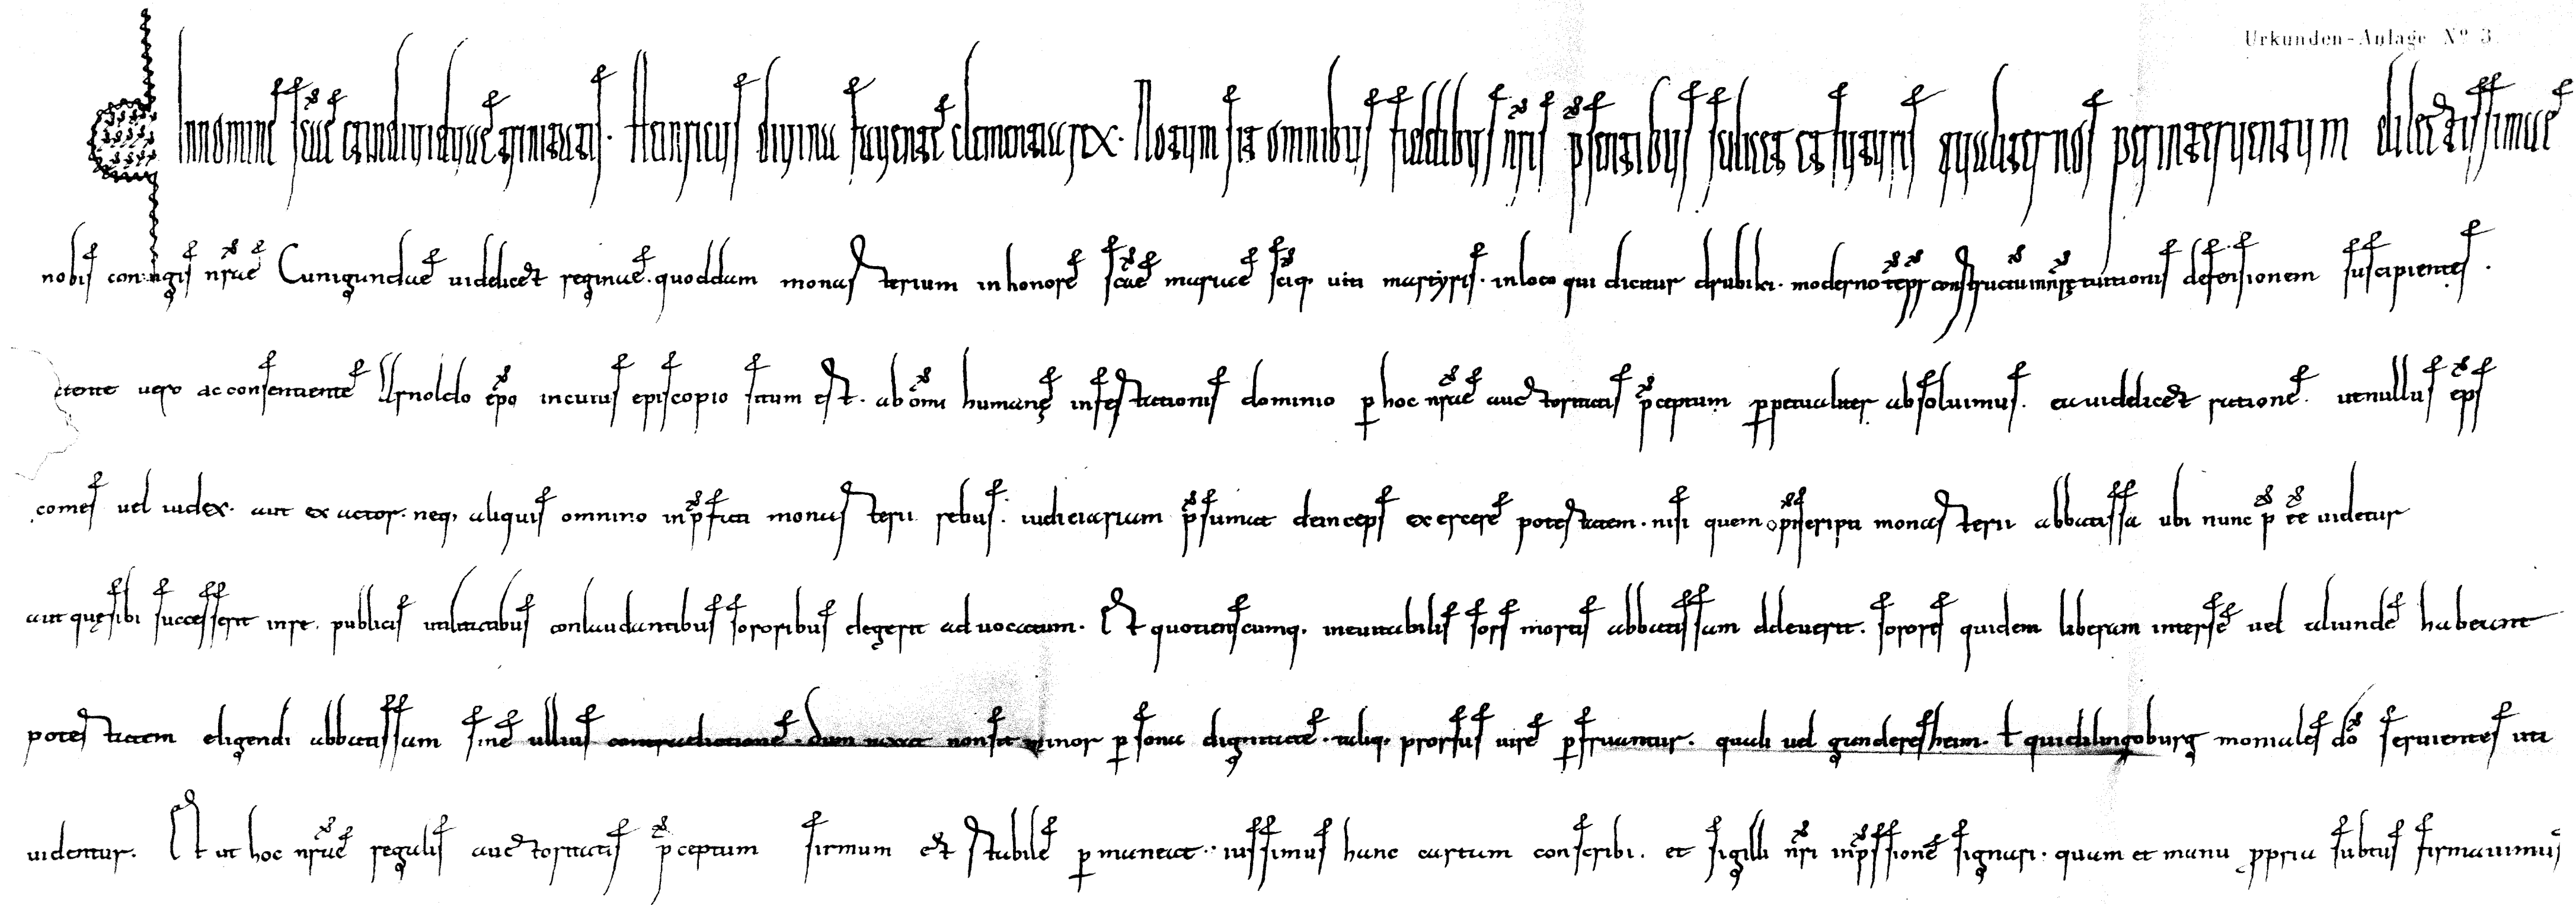 Urkunden-Anlage No 3.
In nomine scae et individuae trinitatis. Heinricus divina favente clementia rex. Notum sit omnibus fidelibus nris psentibus scilicet et futuris qualiter nos per interventum dilectissimae
nobis coniugis nrae Cunigundae uidelicet reginae. quoddam monasterium in honore scae mariae sciq, uiti martyris. in loco qui dicitur drubiki. moderno tepr constructu in nrę tuitionis defensionem suscipientes.
ctente uero ac consentiente Arnoldo epo in cuius episcopio situm est. ab omi humanę infestationis dominio p hoc nrae auctoritatis pceptum ppetualiter absoluimus. ea uidelicet ratione. ut nullus eps
comes uel iudex. aut exactor. neq, aliquis omnino in pfati monasterii rebus. iudiciarium psumat deinceps exercere potestatem. nisi quem pscripti monasterii abbatissa ubi nunc p ee uidetur
aut quę sibi successerit in re publicis utilitatibus conlaudantibus sororibus elegerit aduocatum. Et quotienscumq, ineuitabilis sors mortis abbatissam deleuerit. sorores quidem liberam inter se uel aliunde habeant
potestatem eligendi abbatissam sine ullius contradictione. dum non sit minor psona dignitate. taliq, prorsus iure pfruantur. quali uel ganderesheim. ł quidilingoburg moniales do seruientes uti
uidentur. Et ut hoc nrae regalis auctoritatis pceptum firmum et stabile pmaneat. iussimus hanc cartam conscribi. et sigilli nri inpssione signari. quam et manu ppria subtus firmauimus